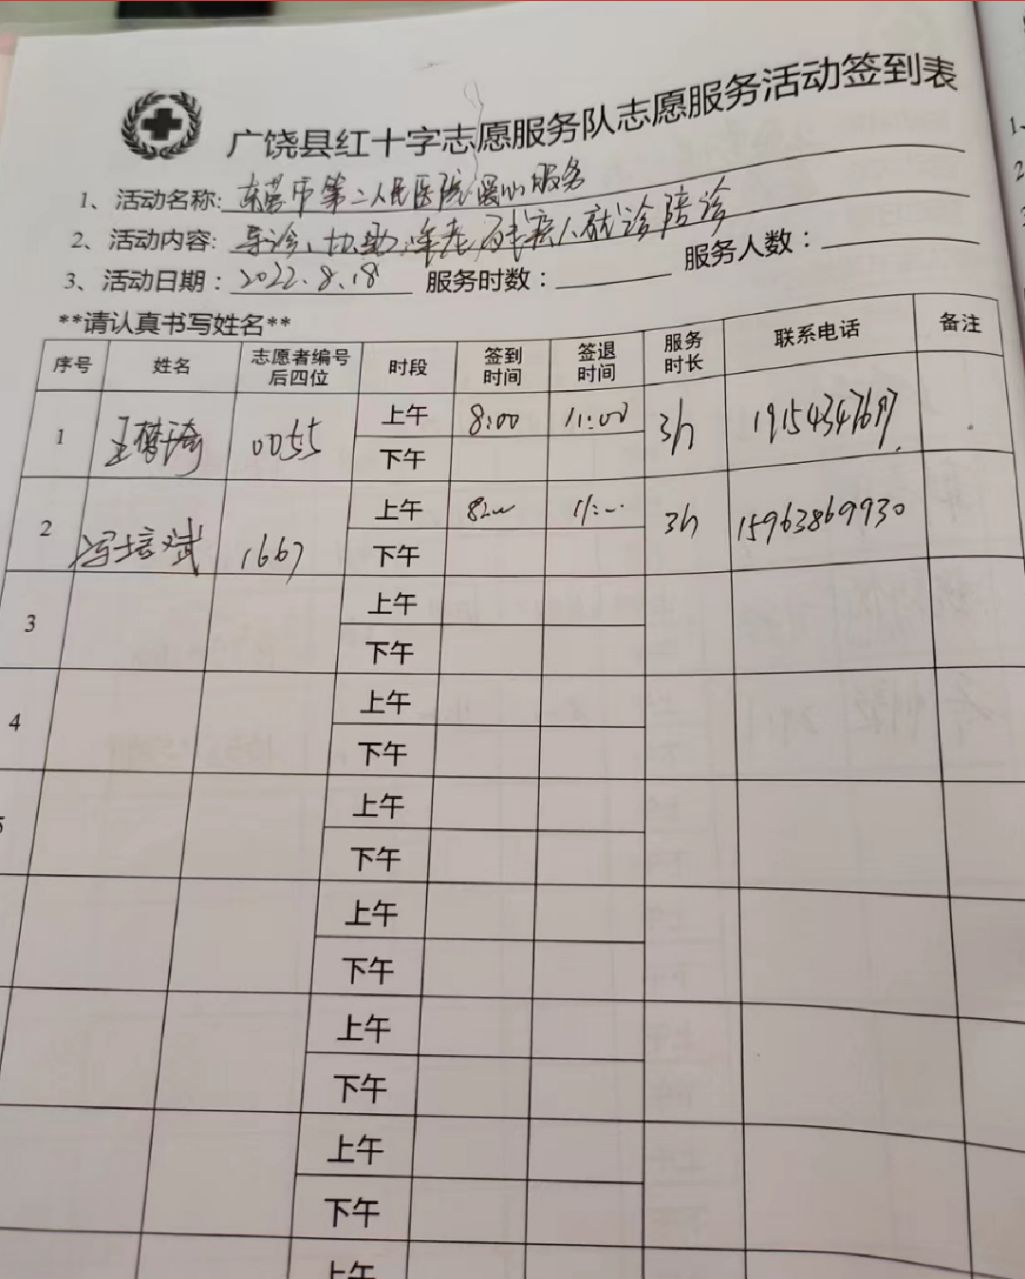 广饶县红十字志愿服务队志愿服务活动签到表
1、活动名称: 东营市第二人民医院暖心服务
2、活动内容: 导诊、协助年老残疾人就诊陪诊
3、活动日期: 2022.8.18 服务时数: 服务人数:
**请认真书写姓名**
序号 姓名 志愿者编号后四位 时段 签到时间 签退时间 服务时长 联系电话 备注
1 王梦琦 0055 上午 8:00 11:00 3h 19154347697
下午
2 冯培斌 1667 上午 3h 15963869930
下午
3 上午
下午
4 上午
下午
5 上午
下午
上午
下午
上午
下午
上午
下午
上午